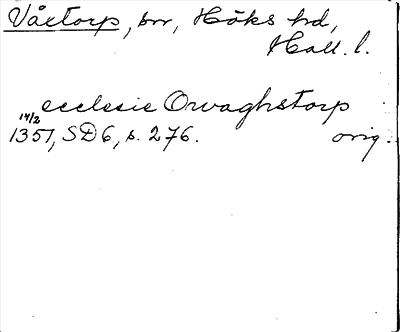 Våxtorp, sn, Höks hd,
Hall. l.
ecclesie Orvaghstorp
14/2
1351, SD6, s. 276. orig.